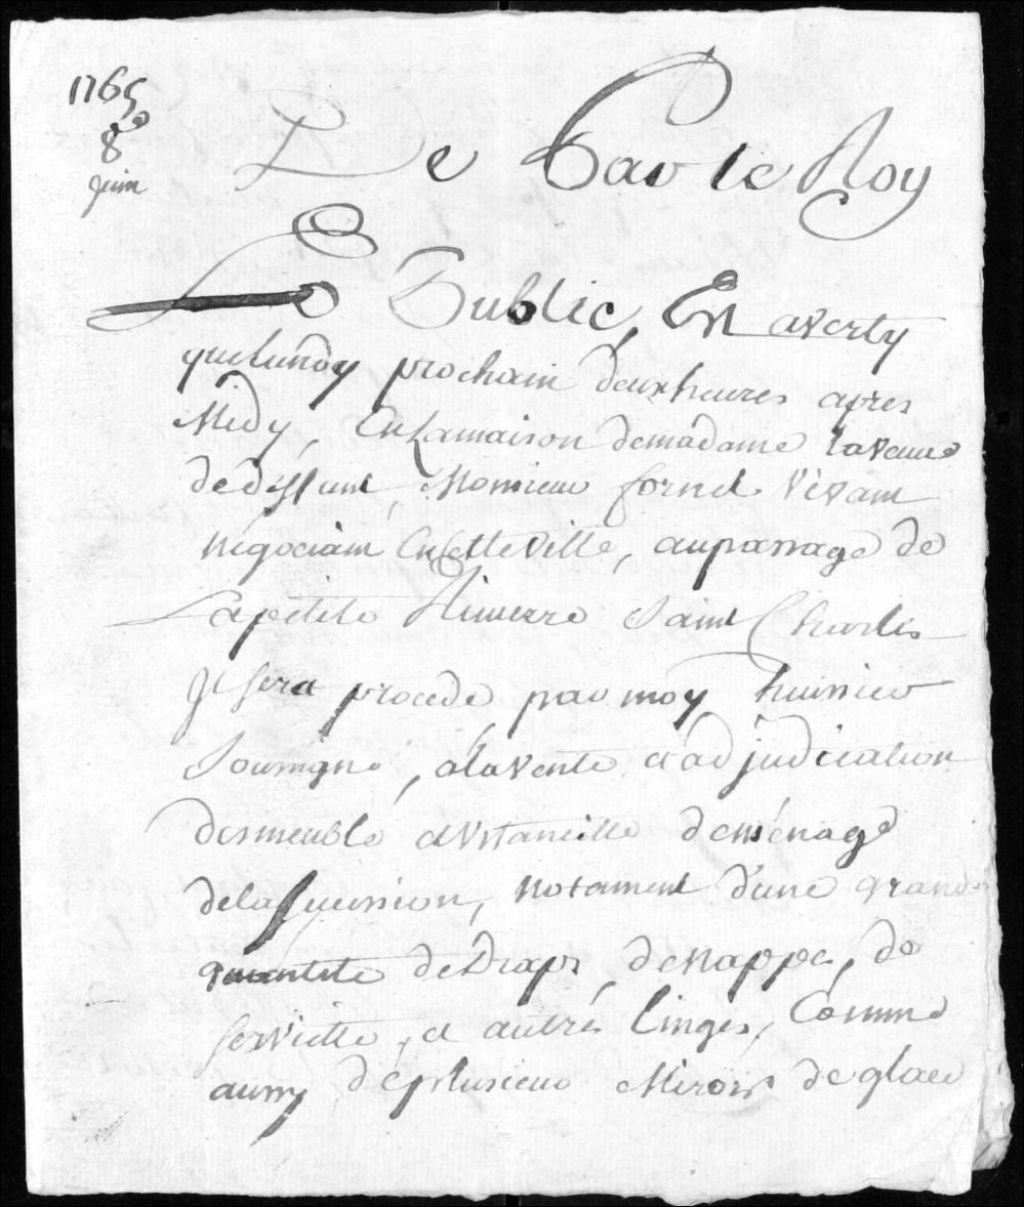 1765
8e
Juin
De Par le Roy
Le Public, Est averty
que lundy prochain deux heures apres
Midy, En Lamaison demadame laveuve
dedeffunt Monsieur fornel vivant
négociant En Cette Ville, aupassage de
Lapetite Riuierre Saint Charles
Il sera procedé par moy huissier
Soussigné, àlavente et adjudication
desmeuble et Ustancille deménage
dela sucession, notament d'une grande
quantité dedraps, denappes, de
serviette, et autrés linges, Comme
aussy déplusieur Mirois de glace